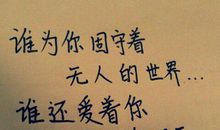 谁为你固守着
无人的世界...
谁还爱着你